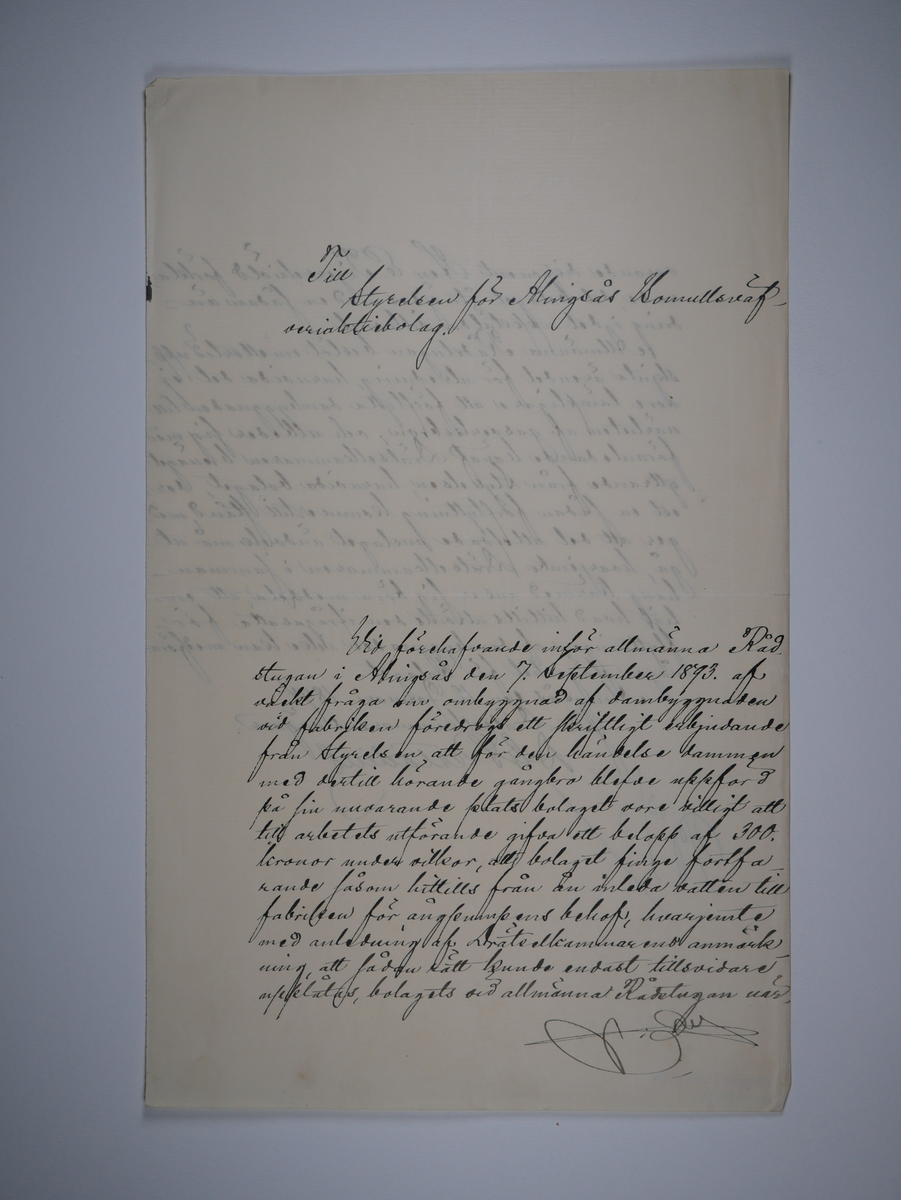 Till
Styrelsen för Alingsås Bomullsväf-
veriaktiebolag.
Vid förehafvande inför allmänna Råd
stugan i Alingsås den 7. September 1893. af
väckt fråga om ombyggnad af dambyggnaden
vid fabriken föredrogs ett skriftligt erbjudande
från Styrelsen, att för den händelse dammen
med dertill hörande gångbro blefve uppförd
på sin nuvarande plats bolaget vore villigt att
till arbetets utförande gifva ett belopp af 300.
kronor under vilkor, att bolaget finge fortfa
rande såsom hittills från ån inleda vatten till
fabriken för ångpumpens behof, hvarjemte
med anledning af Drätselkammarens anmärk
ning, att sådan rätt kunde endast tillsvidare
upplåtas, bolagets vid allmänna Rådstugan när-